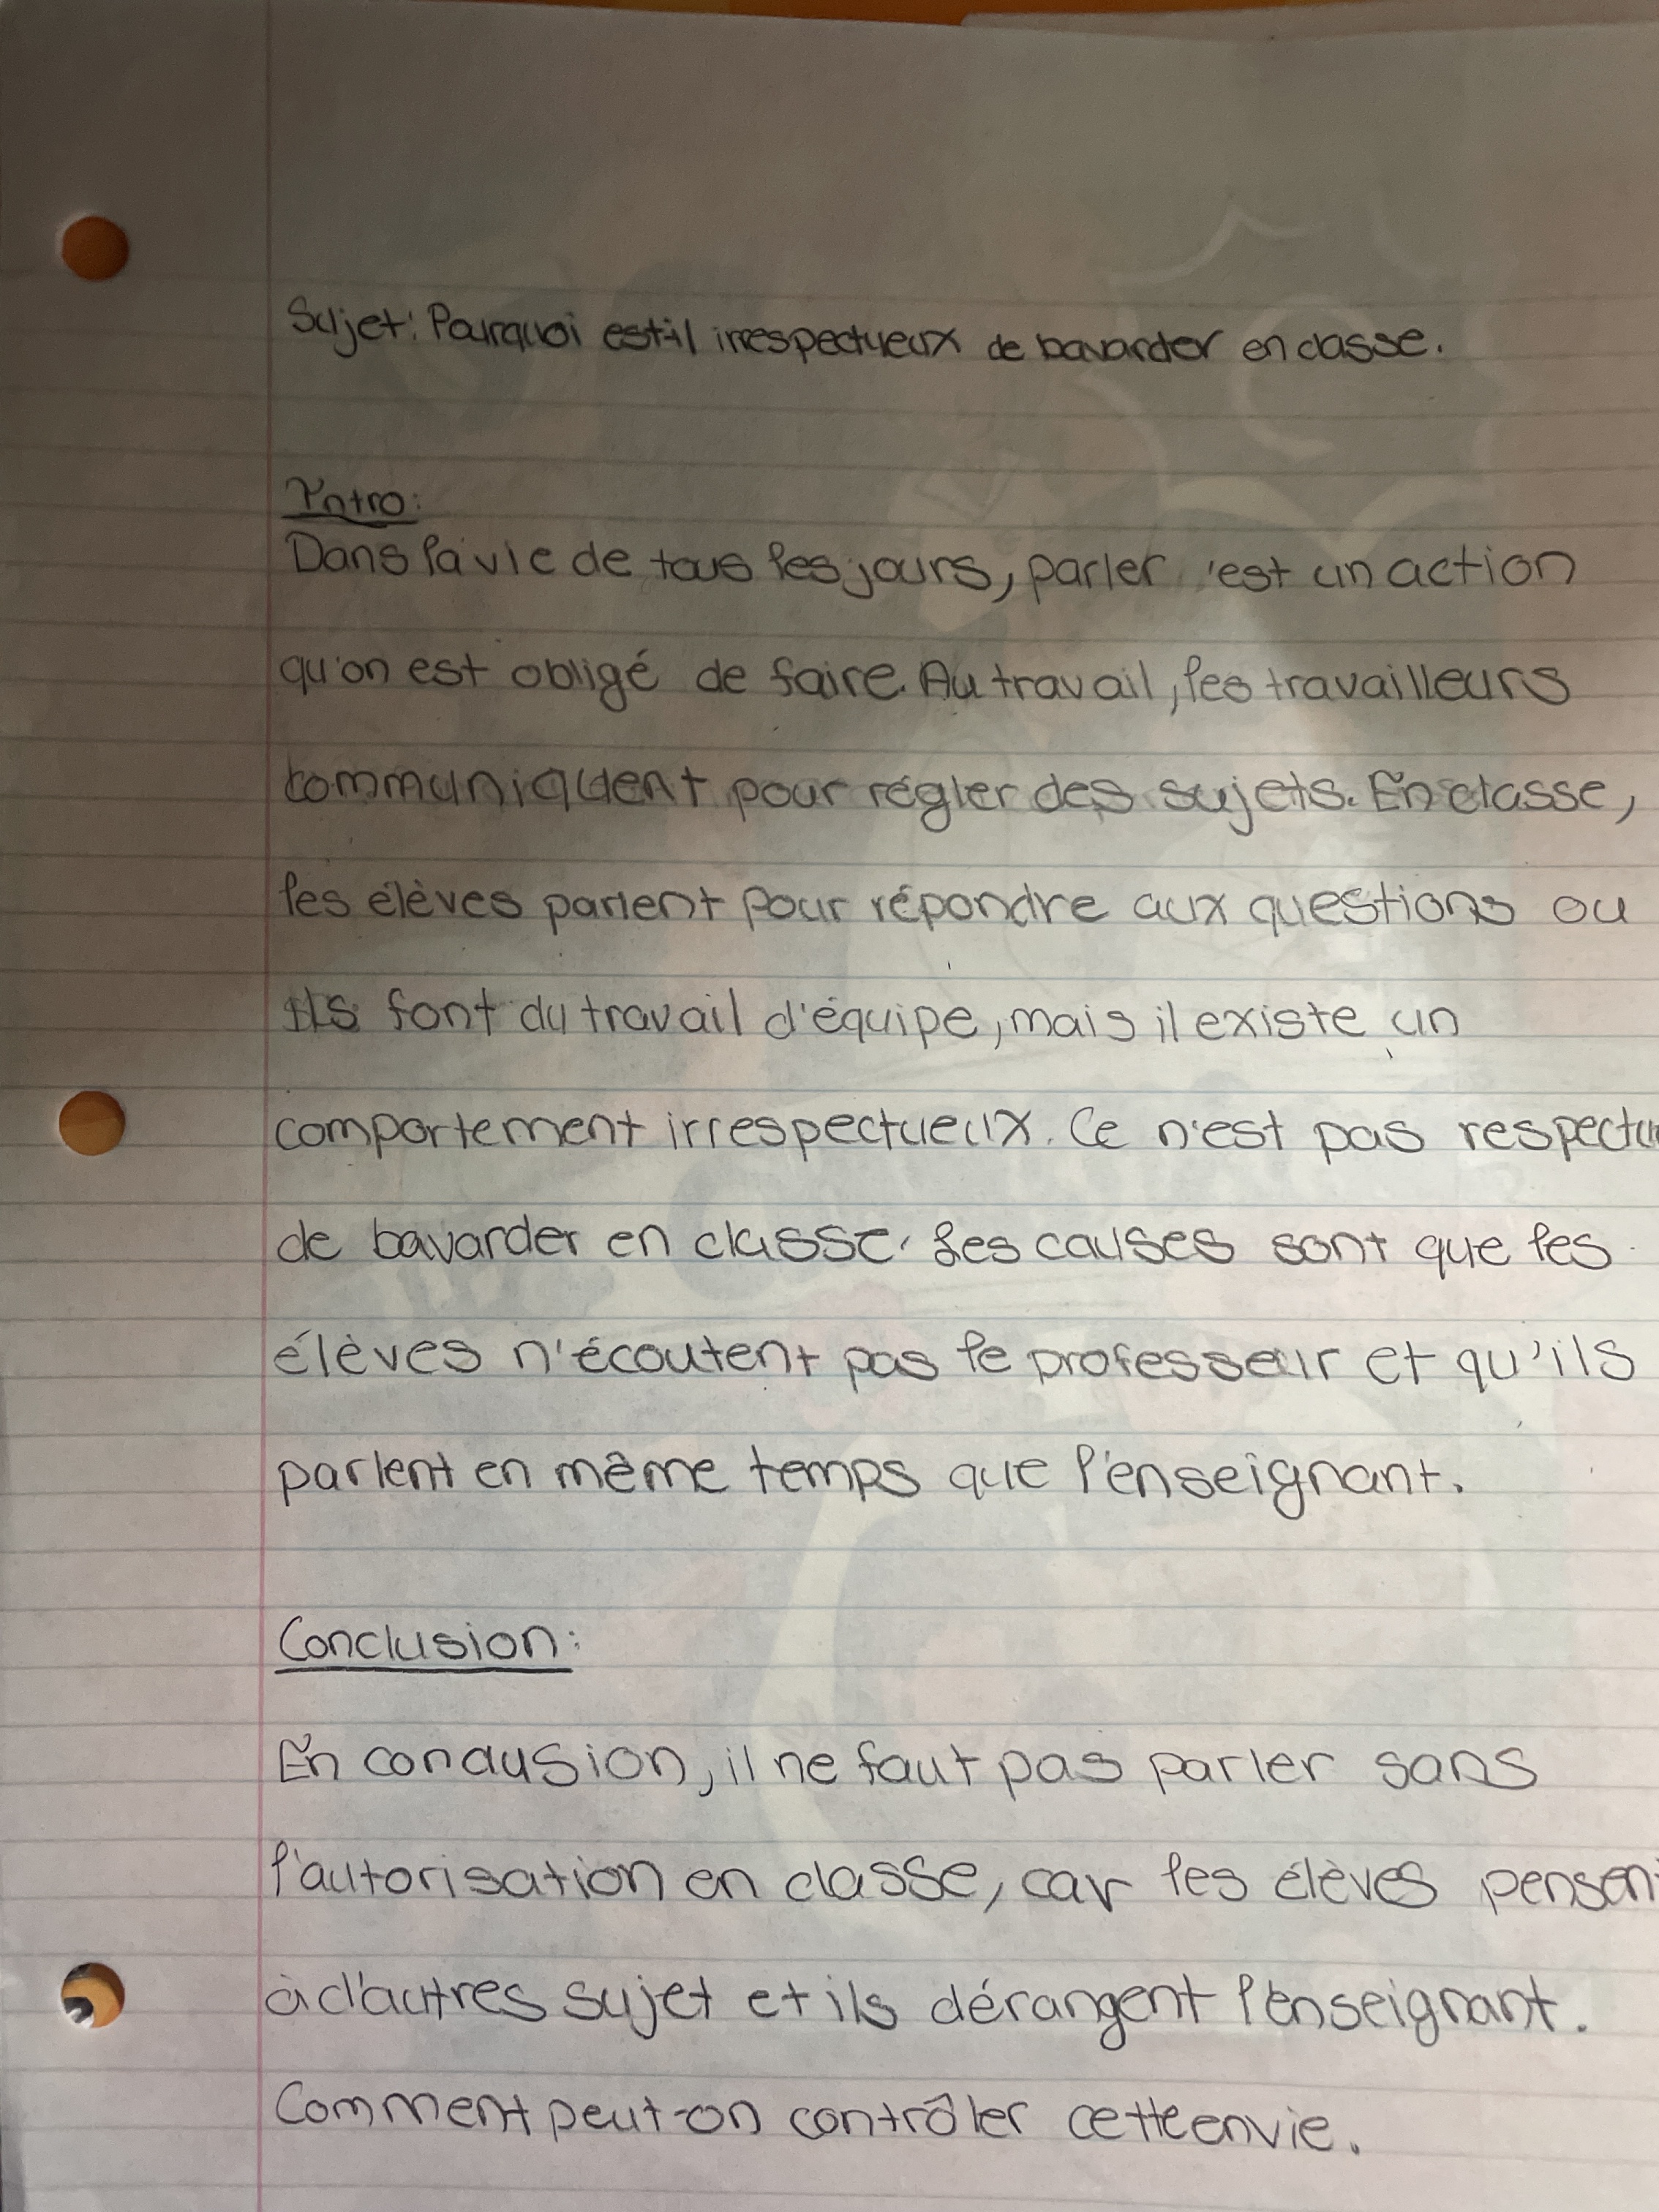 Sujet: Pourquoi est-il irrespectueux de bavarder en classe.
Intro:
Dans la vie de tous les jours, parler est un action
qu'on est obligé de faire. Au travail, les travailleurs
communiquent pour régler des sujets. En classe,
les élèves parlent pour répondre aux questions ou
ils font du travail d'équipe, mais il existe un
comportement irrespectueux. Ce n'est pas
de bavarder en classe. Les causes sont que les
élèves n'écoutent pas le professeur et qu'ils
parlent en même temps que l'enseignant.
Conclusion:
En conclusion, il ne faut pas parler sans
l'autorisation en classe, car les élèves pensent
à d'autres sujet et ils dérangent l'enseignant.
Comment peut-on contrôler cette envie.